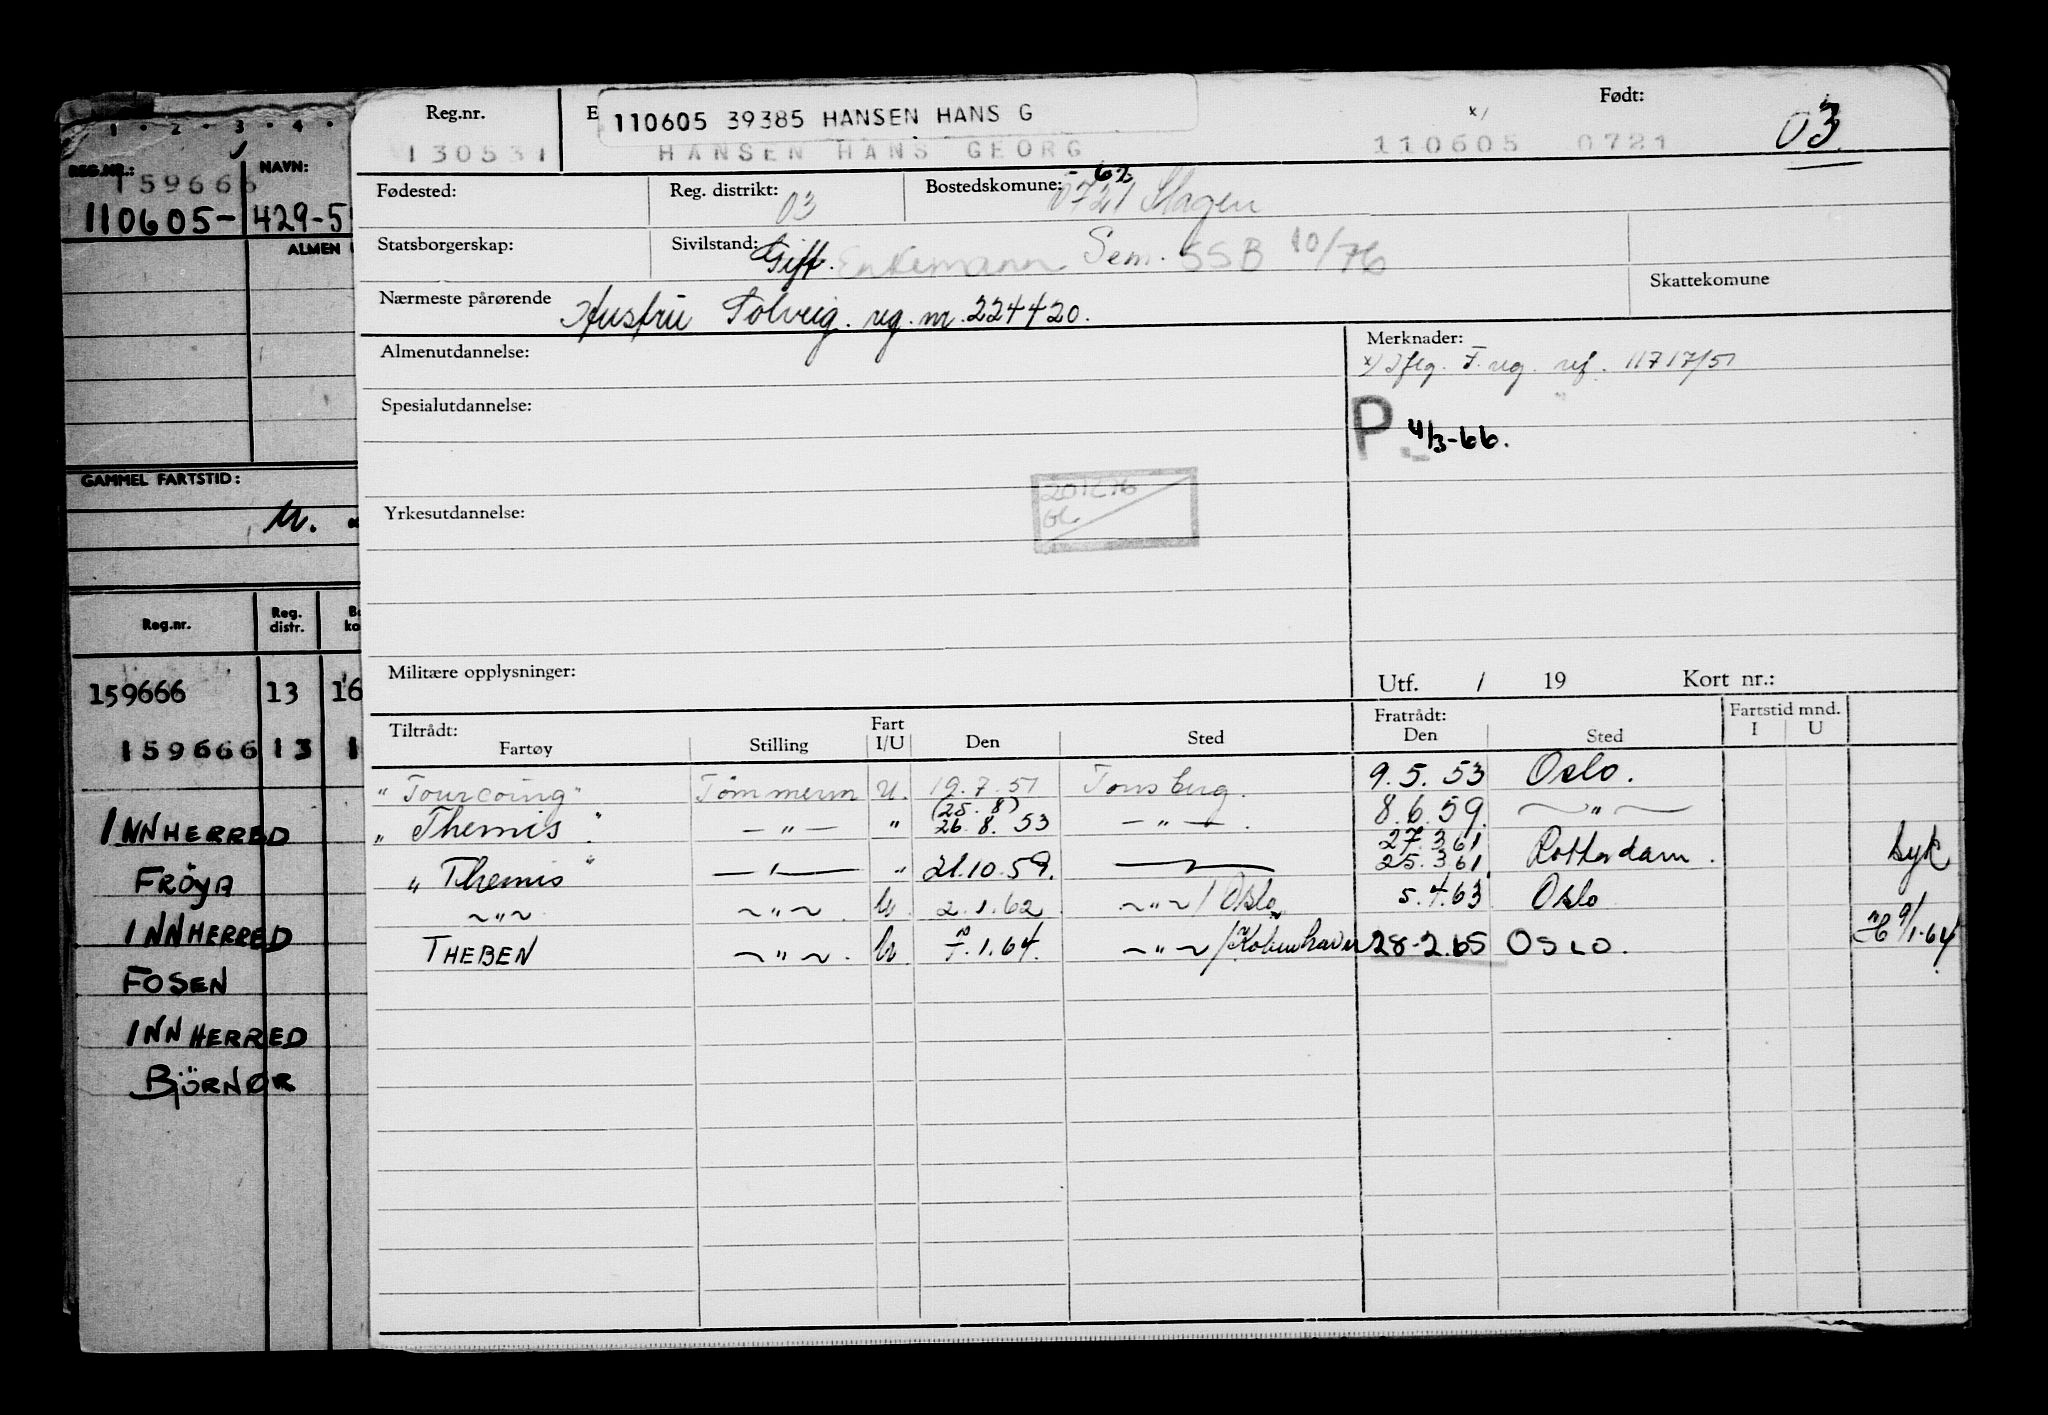 1 · 2 · 3 · 4 ·
REG.NR.: NAVN:
159666
110605- 429-5
ALMEN
GAMMEL FARTSTID:
U. -
Reg.nr. Reg. distr. B ko
159666 13 16
159666 13 1
INNHERRED
FRÖYA
INNHERRED
FOSEN
INNHERRED
BJÖRNØR
Reg.nr. E Født:
110605 39385 HANSEN HANS G
x/ 03
130531 HANSEN HANS GEORG 110605 0721
Fødested: Reg. distrikt: 03 Bostedskomune: -62 0721 Slagen
Statsborgerskap: Sivilstand: Gift. Enkemann Sem. SSB 10/76
Skattekomune
Nærmeste pårørende Hustru Solveig. reg. nr. 224420.
Almenutdannelse: Merknader:
x/ Iflg. F. reg. ref. 11717/51
Spesialutdannelse:
P 4/3-66.
Yrkesutdannelse:
Militære opplysninger: Utf. / 19 Kort nr.:
Tiltrådt: Fratrådt: Fartstid mnd.
Fartøy Stilling Fart I/U Den Sted Den Sted I U
"Tourcoing" Tømmerm U. 19.7.51 Tønsberg. 9.5.53 Oslo.
(25.8)
"Themis" — " — " 26.8.53 — " — . 8.6.59. — " —
27.3.61
"Themis" — " — " 21.10.59. — " — 25.3.61 Rotterdam. syk
~ " ~ ~ " ~ . U. 2.1.62 ~ " ~ / Oslo 5.4.63 Oslo
THEBEN ~ " ~ . U. 7.1.64. ~ " ~ / København 28-2.65 OSLO. 9/1-64